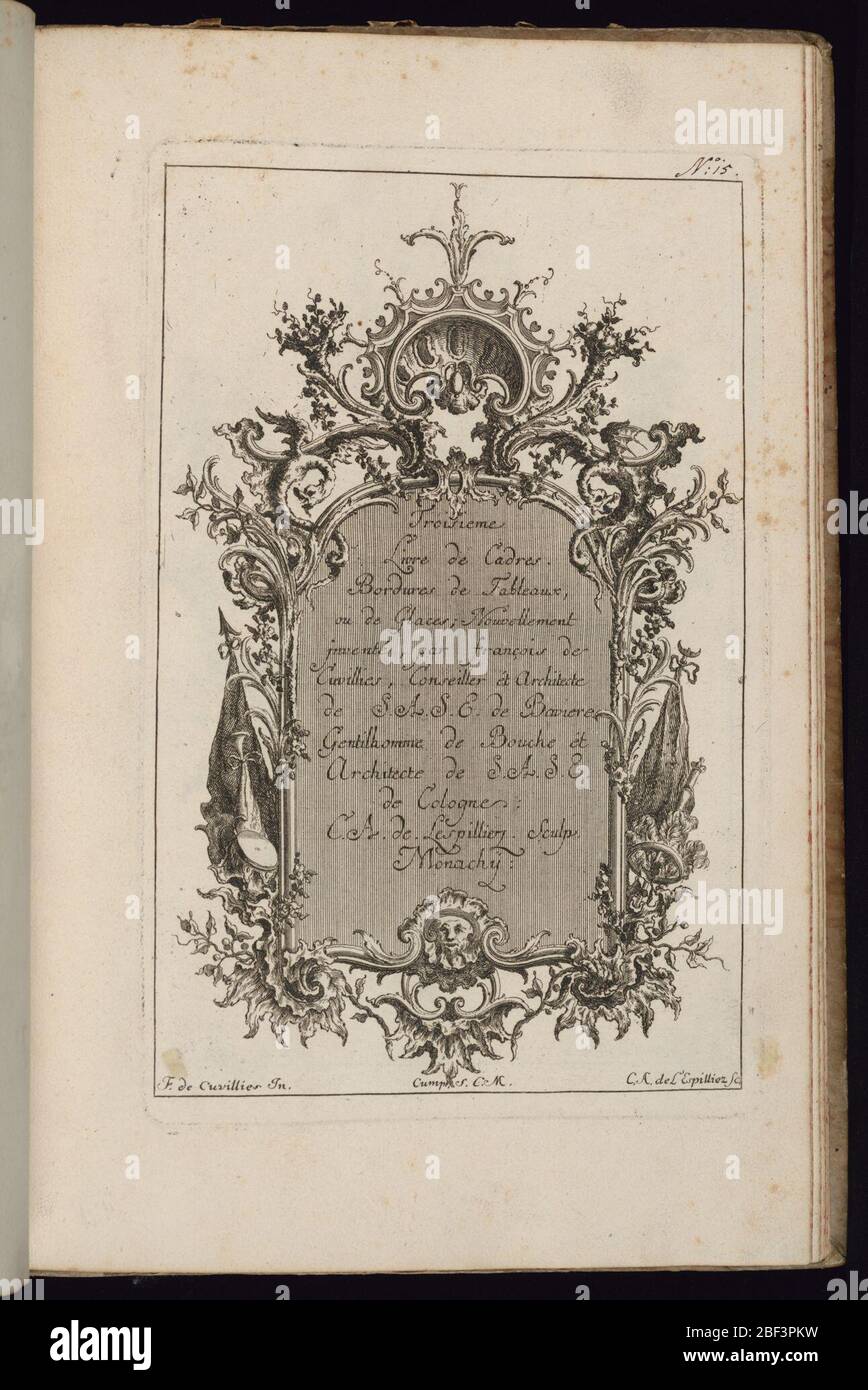 N.º 15.
Troisieme
Livre de Cadres.
Bordures de Tableaux,
ou de Glaces; Nouvellement
jnventé, par françois de
Cuvilliés, Conseiller et Architecte
de S.A.S.E. de Baviere
Gentilhomme de Bouche et
Architecte de S.A.S.E
de Cologne:
C.A. de Lespilliez. Sculp.
Monachÿ:
F. de Cuvilliés In.
Cum p. S. C. M.
C. A. de L'Espilliez Sc
alamy
Image ID: 2BF3PKW
www.alamy.com